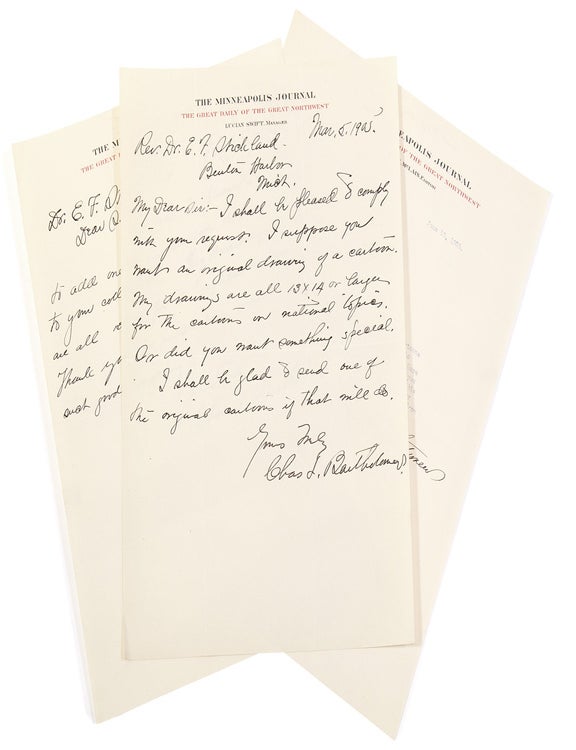 THE MINNEAPOLIS JOURNAL
THE GREAT DAILY OF THE GREAT NORTHWEST
LUCIAN SWIFT, MANAGER
Mar. 5. 1905.
Rev. Dr. E. F. Strickland.
Benton Harbor
Mich.
My Dear Sir:- I shall be pleased to comply
with your request. I suppose you
want an original drawing of a cartoon.
My drawings are all 13x14 or larger
for the cartoons on national topics.
Or did you want something special.
I shall be glad to send one of
the original cartoons if that will do.
Yours Truly
Chas L. Bartholomew.
THE M
THE GREAT
Dr. E. F. St
Dear
to add one
to your coll
are all
Thank y
such good
NEAPOLIS JOURNAL
OF THE GREAT NORTHWEST